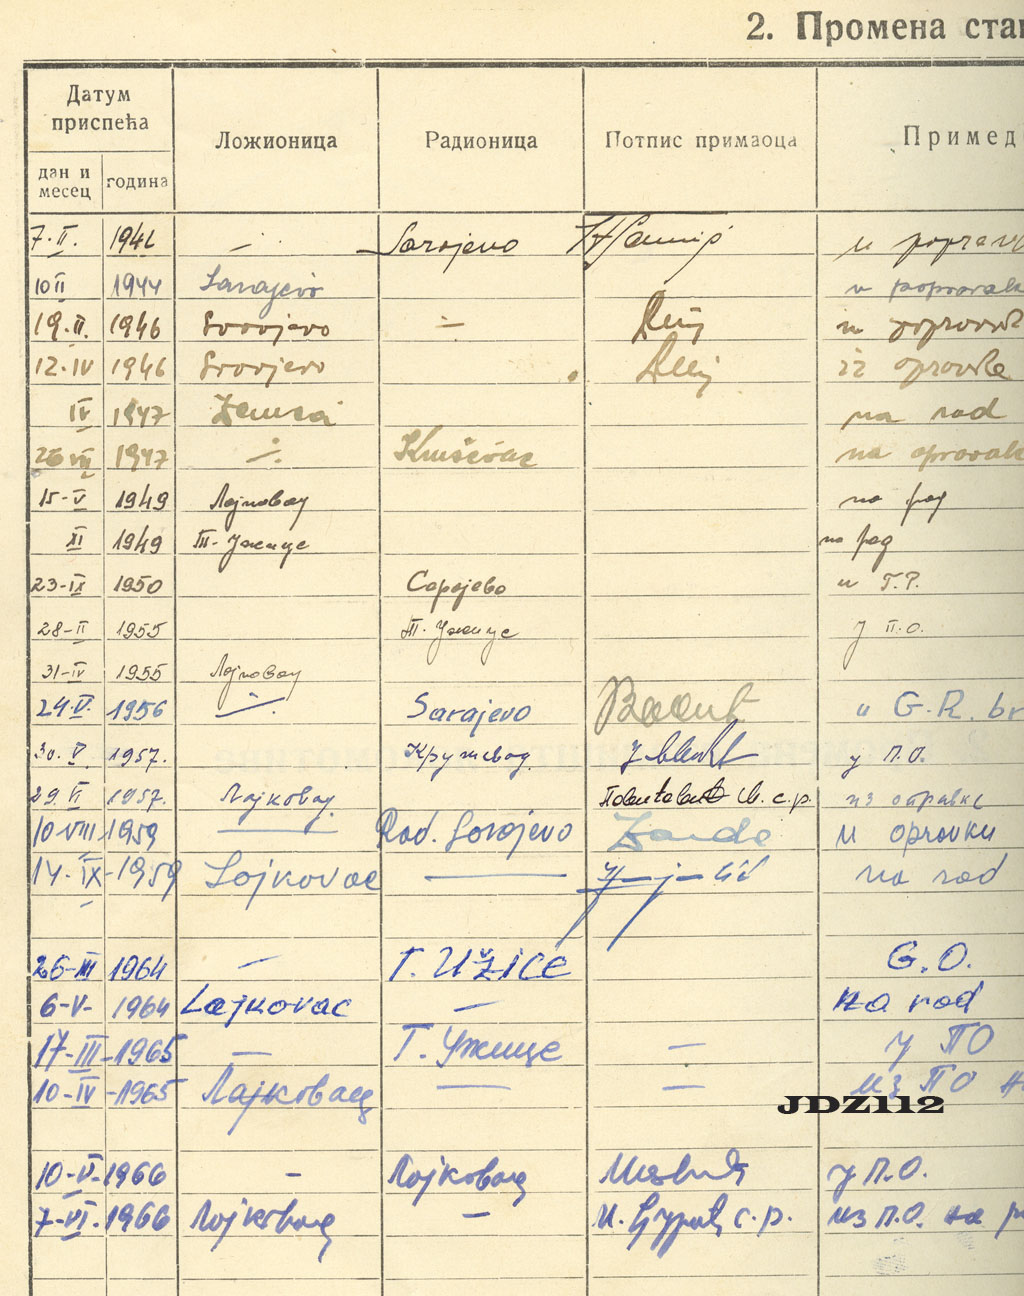 2. Промена ста
Датум приспећа
дан и месец година Ложионица Радионица Потпис примаоца Примед
7. II. 194 Sarajevo u poprav
10 II 1944 Sarajevo u popravak
19. II. 1946 Sarajevo — u popravk
12. IV 1946 Sarajevo iz opravke
IV 1947 Zenica na rad
26 VII 1947 Kruševac na opravak
15-V 1949 Лајковац на рад
XI 1949 Т-Ужице на рад
23-IX 1950 Сарајево u Г.Р.
28-II 1955 Т. Ужице у П.О.
31-IV 1955 Лајковац
24. V. 1956 Sarajevo u G.R. br
30. V. 1957. Крушевац у П.О.
29. VI 1957. Лајковац с.р. из оправке
10-VIII 1959 Rad. Sarajevo u opravku
14-IX-1959 Lajkovac — na rad
26-III 1964 — T. UŽICE G.O.
6-V- 1964 Lajkovac — na rad
17-III-1965 — Т. Ужице — у ПО
10-IV-1965 Лајковац — — из ПО н
JDZ112
10-V-1966 — Лајковац у П.О.
7-VI-1966 Лајковац — с.р. из П.О. на р